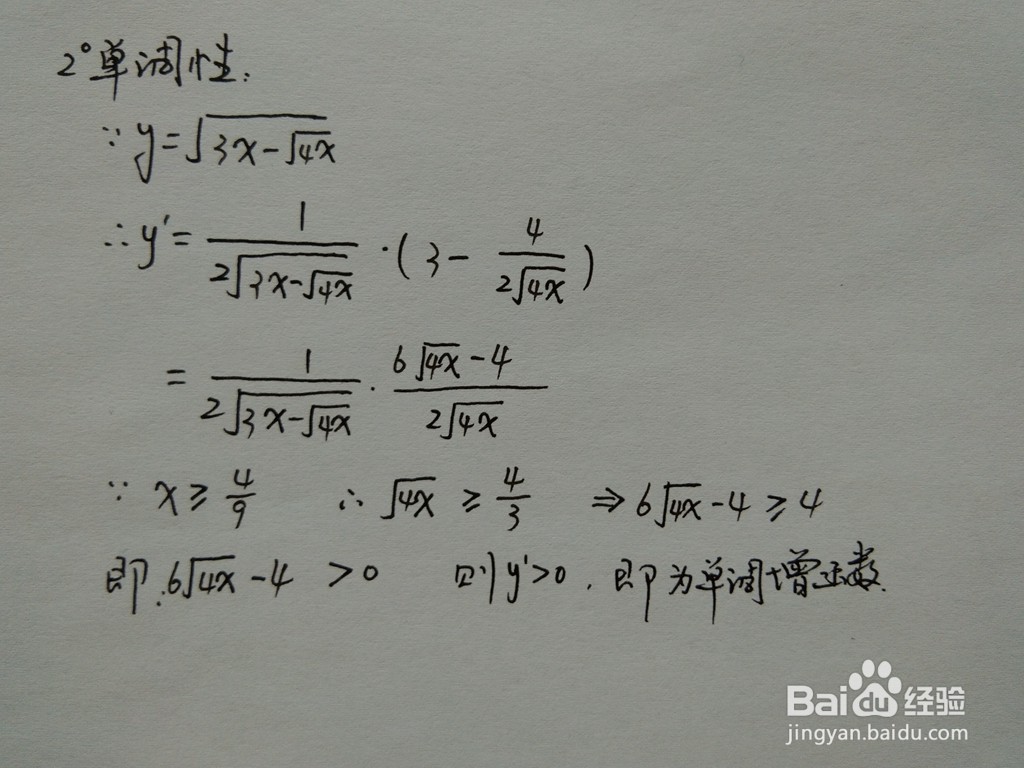 2°单调性:
∵ y=√(3x-√(4x))
∴ y'= 1/(2√(3x-√(4x))) · (3 - 4/(2√(4x)))
= 1/(2√(3x-√(4x))) · (6√(4x)-4)/(2√(4x))
∵ x≥4/9 ∴ √(4x) ≥ 4/3 ⇒ 6√(4x)-4≥4
即.6√(4x)-4 >0 则y'>0. 即为单调增函数.
Bai 经验
jingyan.baidu.com